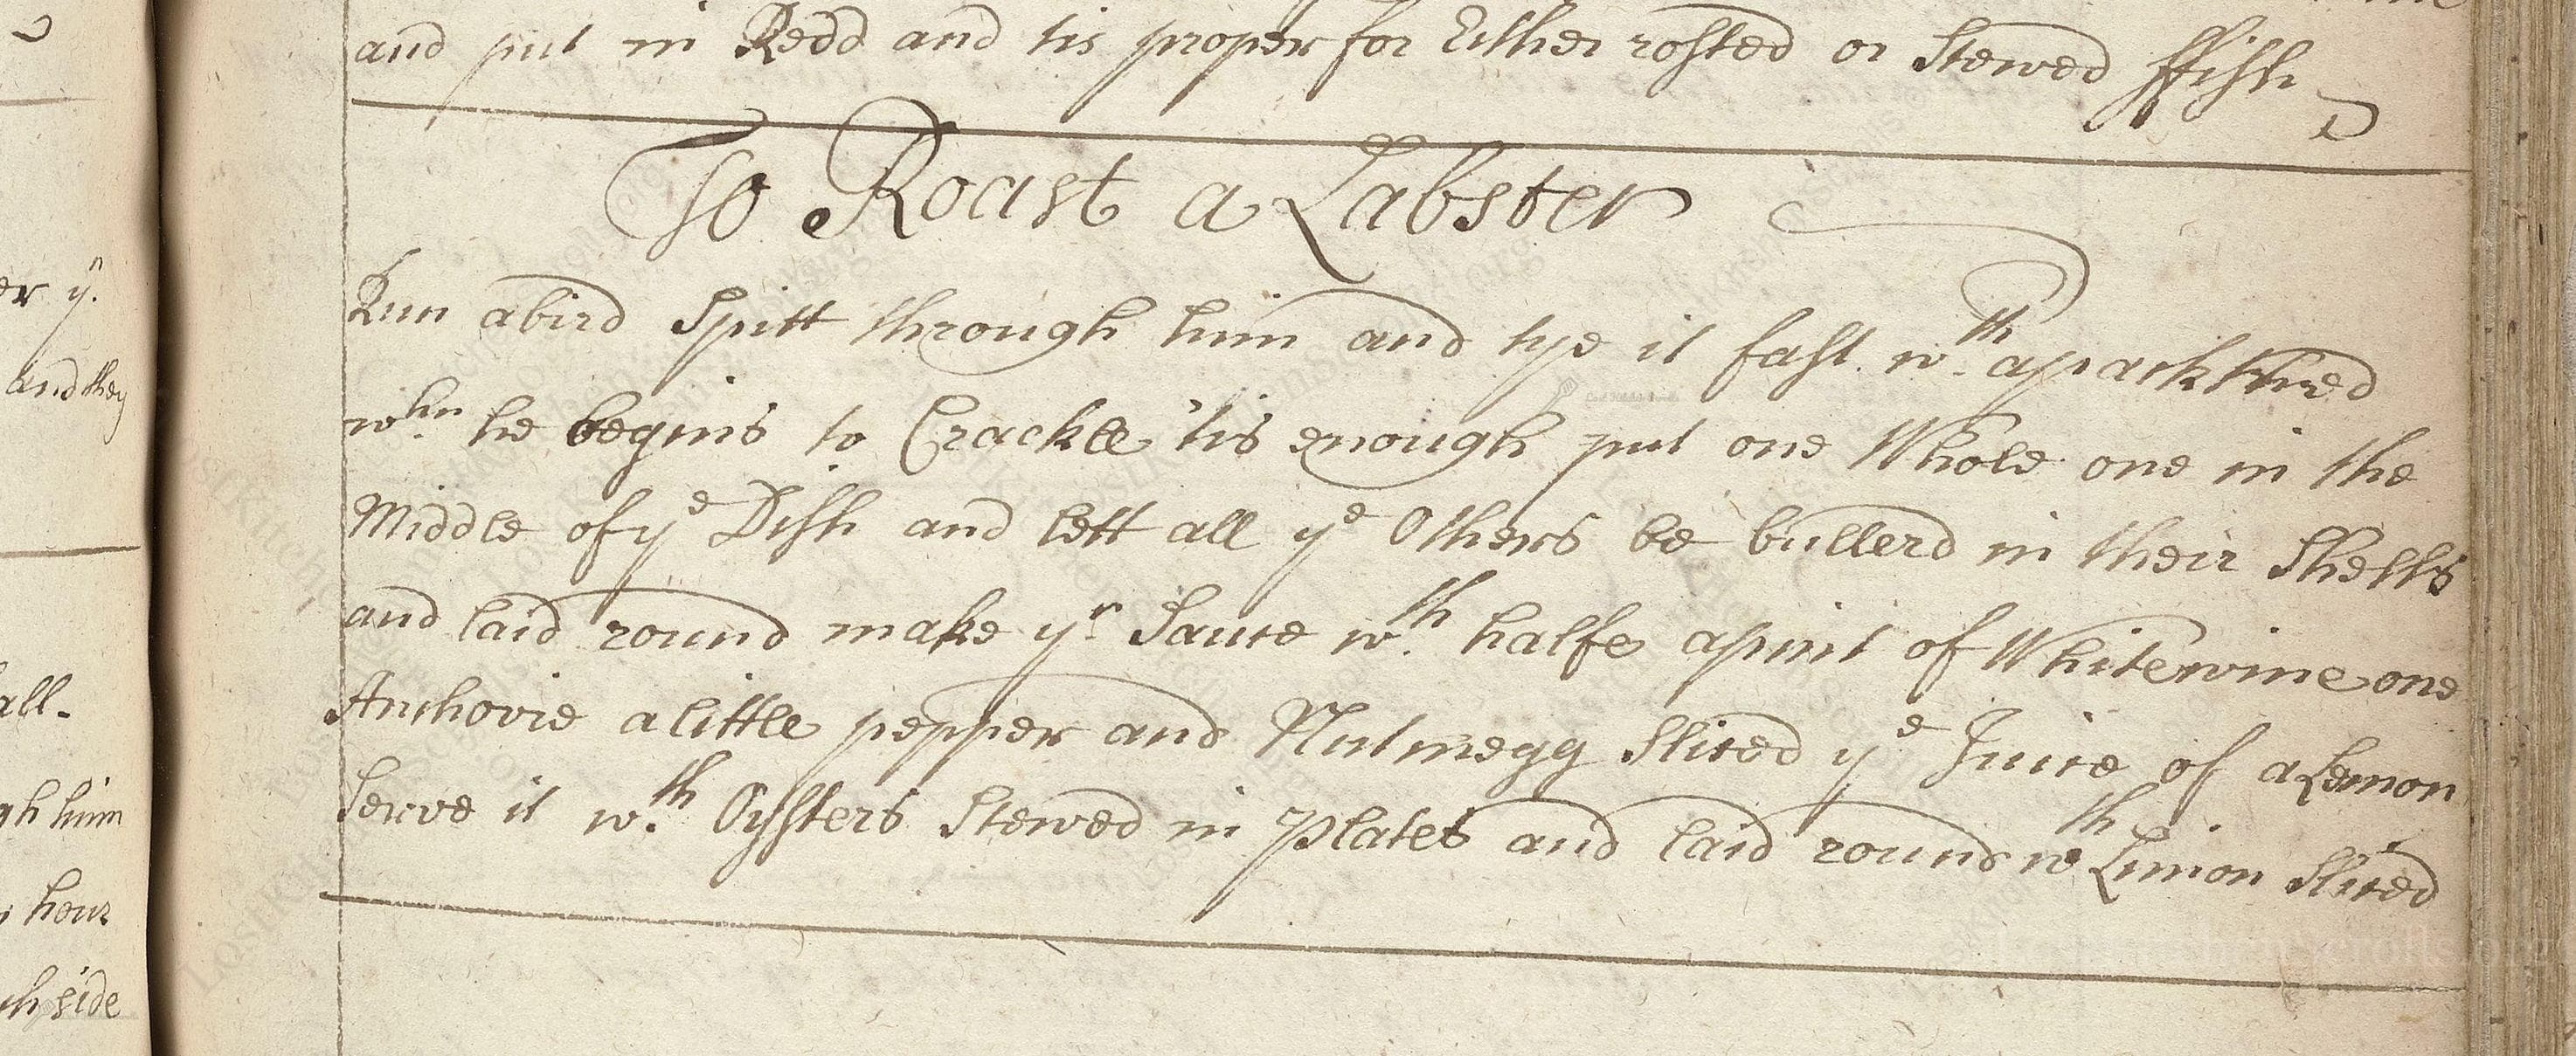 and put in Redd and tis proper for Either rosted or Stewed ffish
To Roast a Labster
Run a bird Spitt through him and tye it fast wth a packthred
whn he begins to Crackle 'tis enough put one Whole one in the
Middle of ye Dish and lett all ye Others be bullerd in their Shells
and laid round make yr Sauce wth halfe a pint of Whitewine one
Anchovie a little pepper and Nutmegg Sliced ye Juice of a Lemon
Serve it wth Oysters Stewed in Plates and laid round wth Limon Sliced
er yn
and they
all.
gh him
hour
ch side